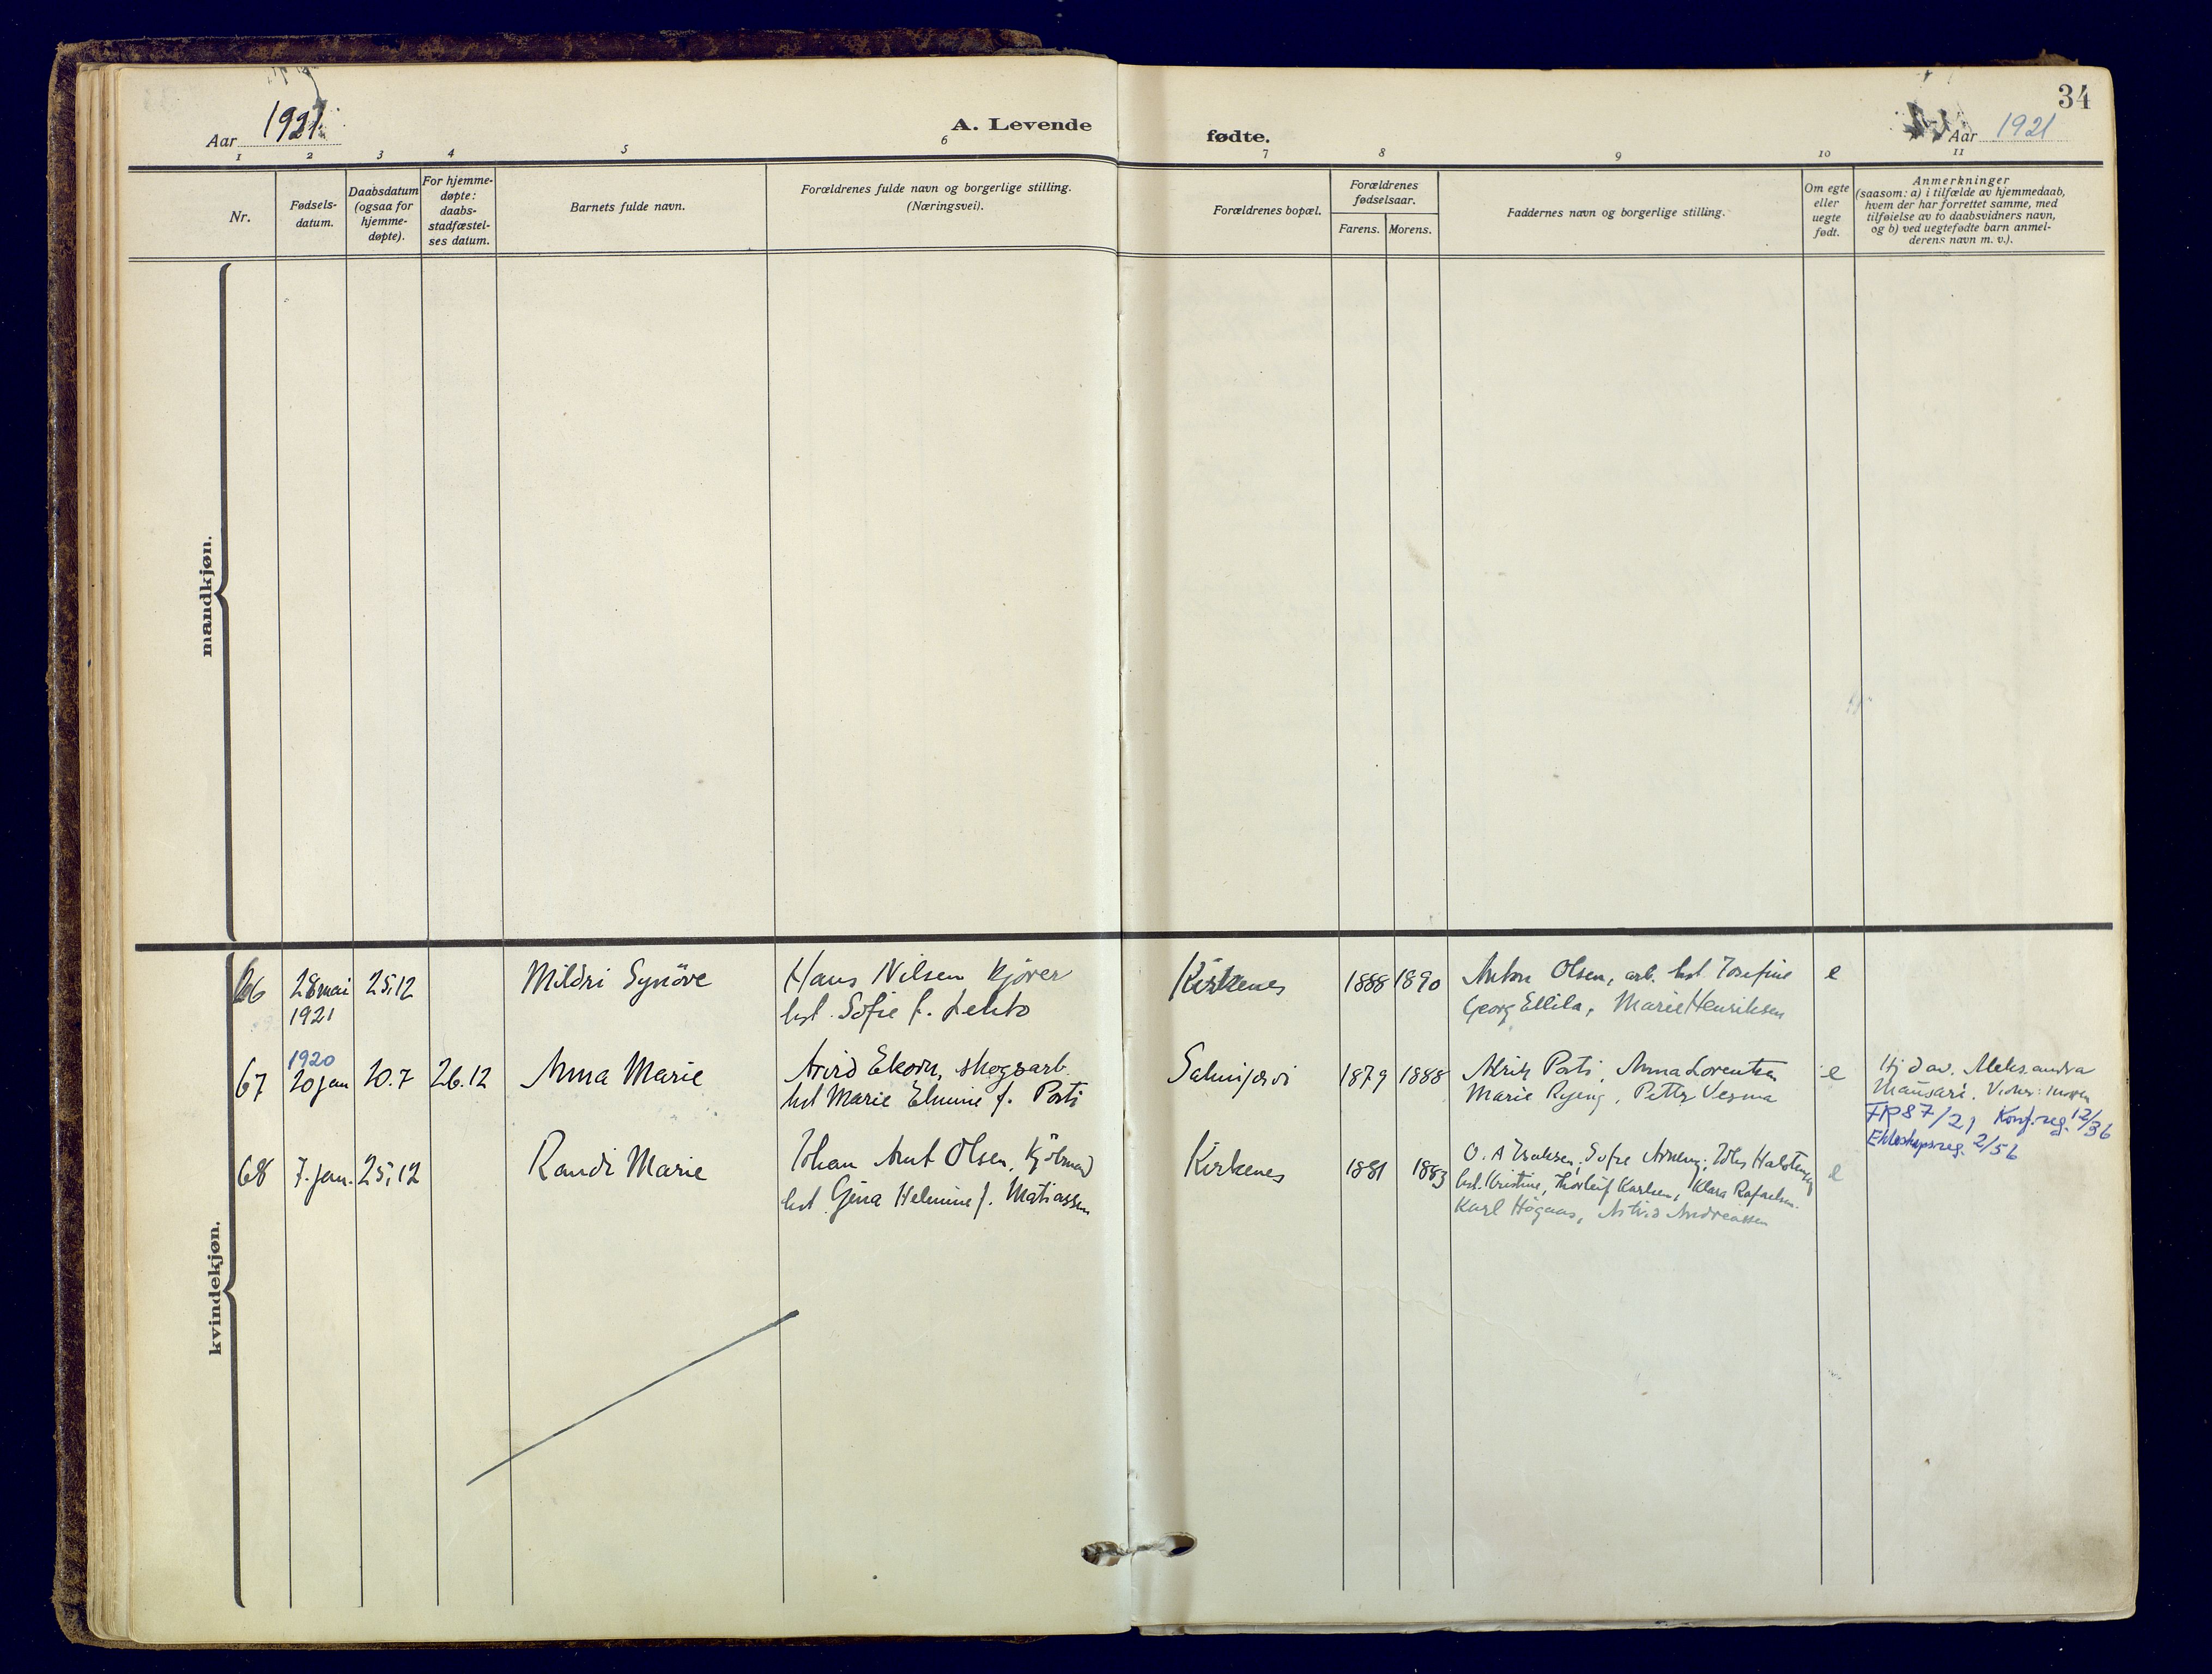 34
Aar 1921
A. Levende fødte.
Aar 1921
1 2 3 4 5 6 7 8 9 10 11
Nr.
Fødsels-
datum.
Daabsdatum
(ogsaa for
hjemme-
døpte).
For hjemme-
døpte:
daabs-
stadfæstel-
ses datum.
Barnets fulde navn.
Forældrenes fulde navn og borgerlige stilling.
(Næringsvei).
Forældrenes bopæl.
Forældrenes
fødselsaar.
Farens. Morens.
Faddernes navn og borgerlige stilling.
Om egte
eller
uegte
født.
Anmerkninger
(saasom: a) i tilfælde av hjemmedaab,
hvem der har forrettet samme, med
tilføielse av to daabsvidners navn,
og b) ved uegtefødte barn anmel-
derens navn m. v.).
mandkjøn.
kvindekjøn.
66 28 mai 25.12 Mildri Synöve Hans Nilsen kjörer Kirkenes 1888 1890 Anton Olsen, arb. hst. Josefine e
1921 hst. Sofie f. Lehto Georg Ellila, Marie Henriksen
1920
67 20 jan 20.7 26.12 Anna Marie Arvid Ekorn, skogsarb. Salmijærvi 1879 1888 Alrik Porti, Anna Lorentsen e Hj d av. Aleksandra
hst Marie Elmine f. Porti Marie Ryeng, Petter Vesma
FR 87/21 Konf.reg. 12/36
Ekteskapsreg. 2/56
68 7. jan. 25.12 Randi Marie Johan Arnt Olsen, Kirkenes 1881 1883 e
hst Gina Helmine f. Matiassen hst. Kristine, Thorleif Karlsen, Klara Rafaelsen.
Karl Högaas, Astrid Andreassen